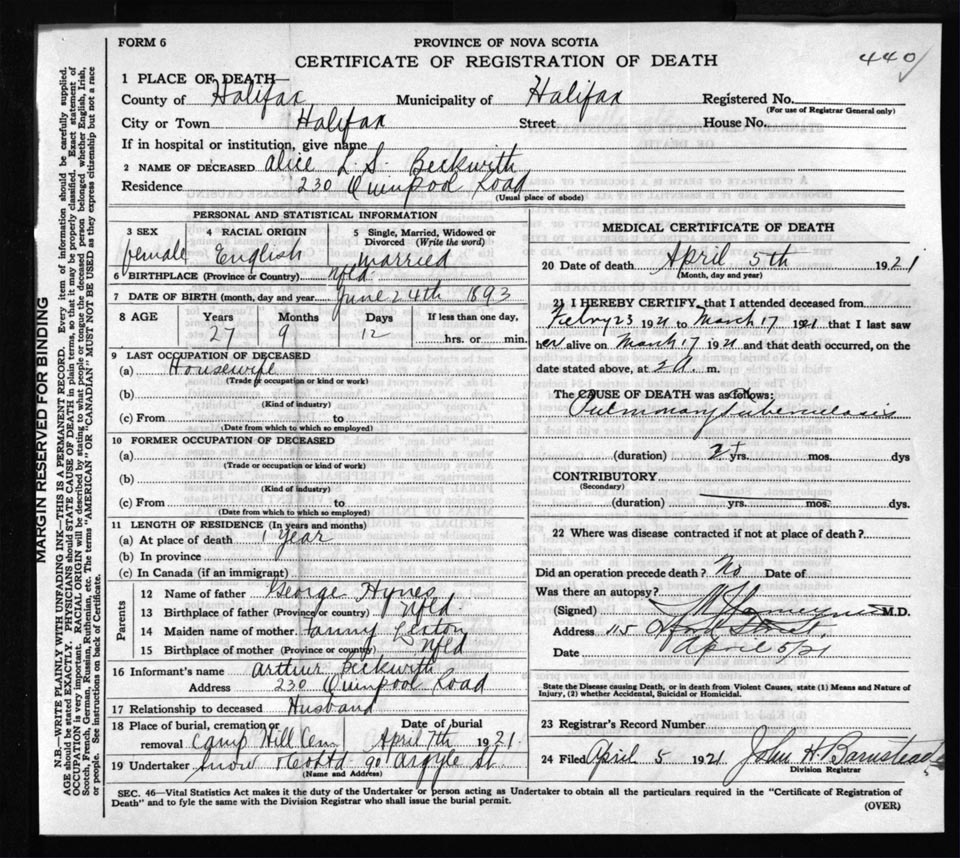 FORM 6
PROVINCE OF NOVA SCOTIA
CERTIFICATE OF REGISTRATION OF DEATH
440
1 PLACE OF DEATH
County of Halifax Municipality of Halifax Registered No.
(For use of Registrar General only)
City or Town Halifax Street House No.
If in hospital or institution, give name
2 NAME OF DECEASED Alice L. S. Beckwith
Residence 230 Quinpool Road
(Usual place of abode)
PERSONAL AND STATISTICAL INFORMATION
3 SEX 4 RACIAL ORIGIN 5 Single, Married, Widowed or
Divorced (Write the word)
female English married
6 BIRTHPLACE (Province or Country) Nfld.
7 DATE OF BIRTH (month, day and year) June 24th 1893
8 AGE Years Months Days If less than one day,
27 9 12 hrs. or min.
9 LAST OCCUPATION OF DECEASED
(a) Housewife
(Trade or occupation or kind of work)
(b)
(Kind of industry)
(c) From to
(Date from which to which so employed)
10 FORMER OCCUPATION OF DECEASED
(a)
(Trade or occupation or kind of work)
(b)
(Kind of industry)
(c) From to
(Date from which to which so employed)
11 LENGTH OF RESIDENCE (In years and months)
(a) At place of death 1 Year
(b) In province
(c) In Canada (if an immigrant)
Parents
12 Name of father George Hynes
13 Birthplace of father (Province or country) Nfld.
14 Maiden name of mother Fanny
15 Birthplace of mother (Province or country) Nfld
16 Informant's name Arthur Beckwith
Address 230 Quinpool Road
17 Relationship to deceased Husband
18 Place of burial, cremation or Date of burial
removal Camp Hill Cem April 7th 1921.
19 Undertaker Snow 90 Argyle St.
(Name and Address)
MEDICAL CERTIFICATE OF DEATH
20 Date of death April 5th 1921
(Month, day and year)
21 I HEREBY CERTIFY, that I attended deceased from
Febry 23 1921 to March 17 1921 that I last saw
her alive on March 17 1921 and that death occurred, on the
date stated above, at m.
The CAUSE OF DEATH was as follows:
Pulmonary Tuberculosis
(duration) 2 yrs. mos. dys
CONTRIBUTORY
(Secondary)
(duration) yrs. mos. dys.
22 Where was disease contracted if not at place of death?
Did an operation precede death? No Date of
Was there an autopsy?
(Signed) M.D.
Address 115
Date April 5/21
State the Disease causing Death, or in death from Violent Causes, state (1) Means and Nature of
Injury, (2) whether Accidental, Suicidal or Homicidal.
23 Registrar's Record Number
24 Filed April 5 1921 John H Barnstead
Division Registrar
SEC. 46—Vital Statistics Act makes it the duty of the Undertaker or person acting as Undertaker to obtain all the particulars required in the "Certificate of Registration of
Death" and to fyle the same with the Division Registrar who shall issue the burial permit.
(OVER)
MARGIN RESERVED FOR BINDING
N.B.—WRITE PLAINLY WITH UNFADING INK—THIS IS A PERMANENT RECORD. Every item of information should be carefully supplied.
AGE should be stated EXACTLY. PHYSICIANS should STATE CAUSE OF DEATH in plain terms, so that it may be properly classified. Exact statement of
OCCUPATION is very important. RACIAL ORIGIN will be described by stating to what people or tongue the deceased person belonged, whether English, Irish,
Scotch, French, German, Russian, Ruthenian, etc. The terms "AMERICAN" OR "CANADIAN" MUST NOT BE USED as they express citizenship but not a race
or people. See instructions on back of Certificate.